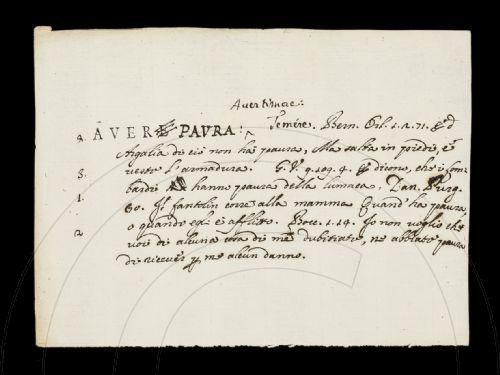 Aver timore:
AVER PAVRA: Temére. Bern. Orl. 1. 2. 71. Ed
Argalia di ciò non ha paura, Ma salta in piedi, e
vesto l'armadura. G. V. 9. 109. 4. E dicono, che i Lom-
bardi hanno paura della lumaca, Dan. Purg.
30. Il fantolin corre alla mamma Quand' ha paura,
o quando egli è afflitto. Bocc. 1. 14. Io non voglio che
voi di alcuna cosa di me dubitiate, ne abbiate paura
di ricever p me alcun danno.
3
1
2